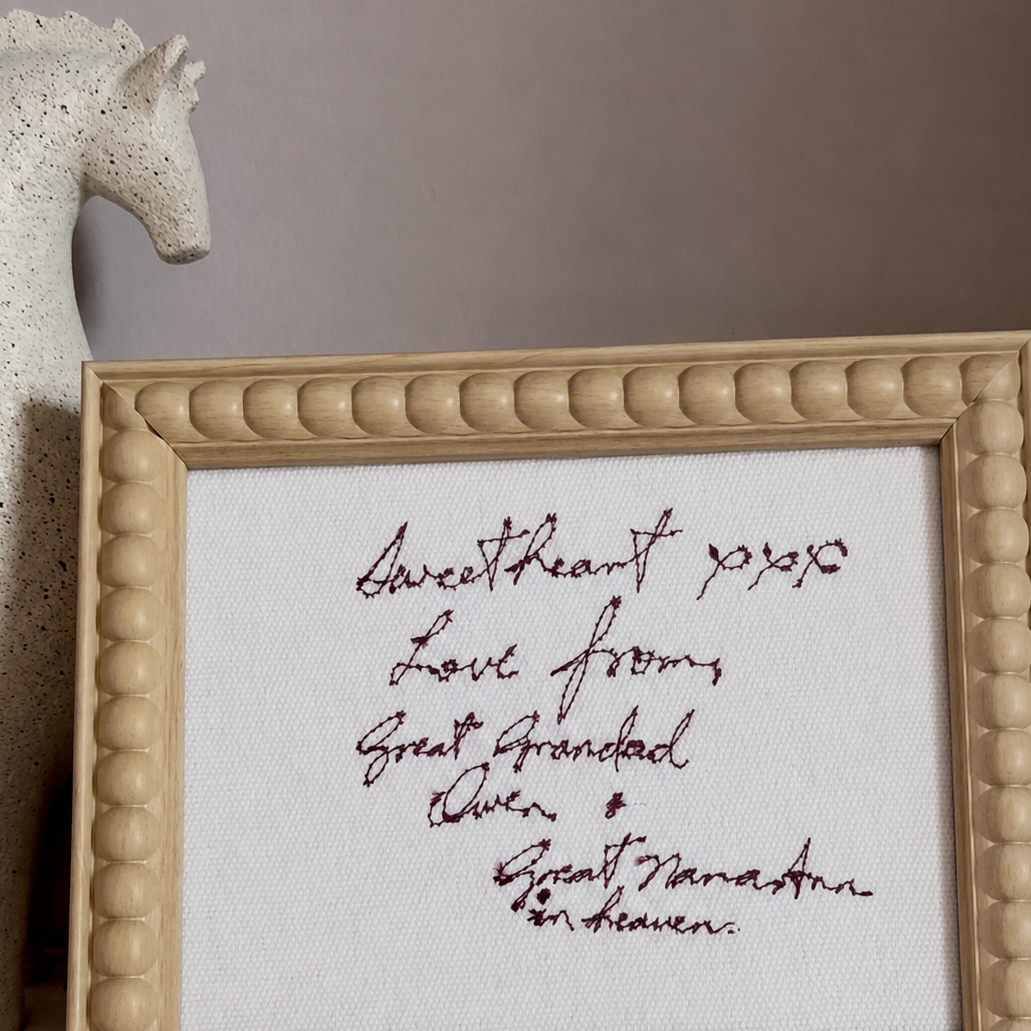 Sweetheart xxx
Love from,
Great Grandad
Owen &
Great Nana Ann
in heaven.